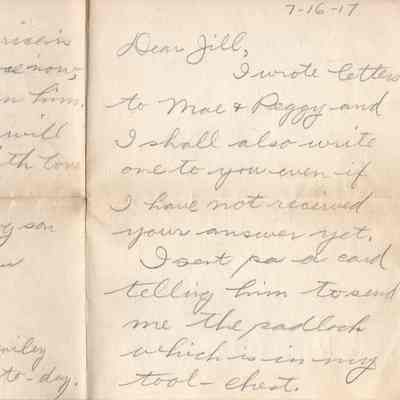 now,
n him.
will
ith love
son
to-day.
7-16-17
Dear Jill,
I wrote letters
to Mae & Peggy and
I shall also write
one to you even if
I have not received
your answer yet.
I sent pa a card
telling him to send
me the padlock
which is in my
tool-chest.